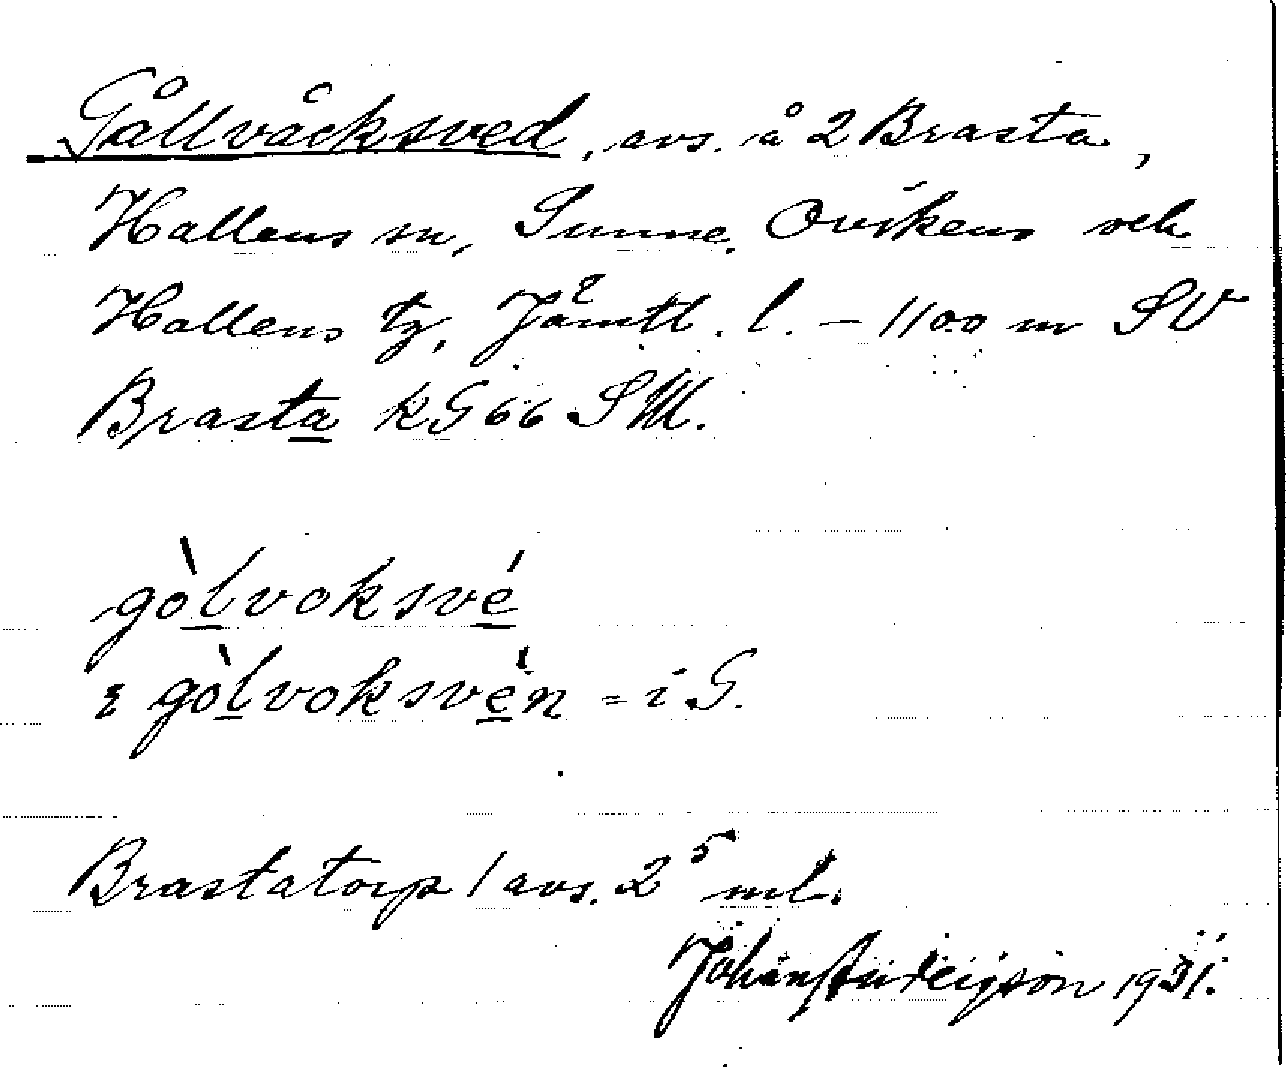 Gållvåcksved, avs. å 2 Brasta,
Hallens sn, Sunne, Ovikens och
Hallens tg, Jämtl. l. – 1100 m SV
Brasta k G 66 SM.
gòlvoksvé
gòlvoksvèn = i G.
Brastatorp / avs. 2⁵ ml.
Johan 1931.